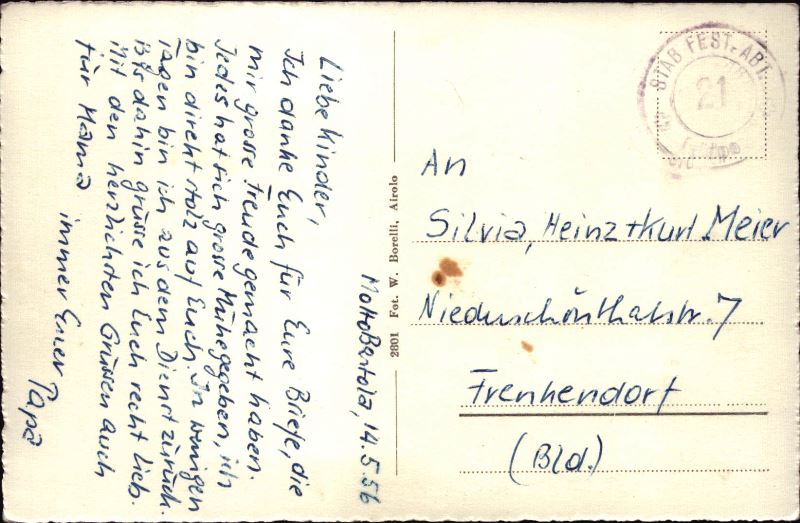 Motto Bartola, 14.5.56
Liebe Kinder,
Ich danke Euch für Eure Briefe, die
mir grosse Freude gemacht haben.
Jedes hat sich grosse Mühe gegeben, ich
bin direkt stolz auf Euch. In wenigen
Tagen bin ich aus dem Dienst zurück.
Bis dahin grüsse ich Euch recht lieb.
Mit den herzlichsten Grüssen auch
für Mama
immer Euer
Papa
2601 Fot. W. Borelli, Airolo
STAB FEST. ABT.
21
An
Silvia, Heinz + Kurt Meier
Niederschönthalstr. 7
Frenkendorf
(Bld.)